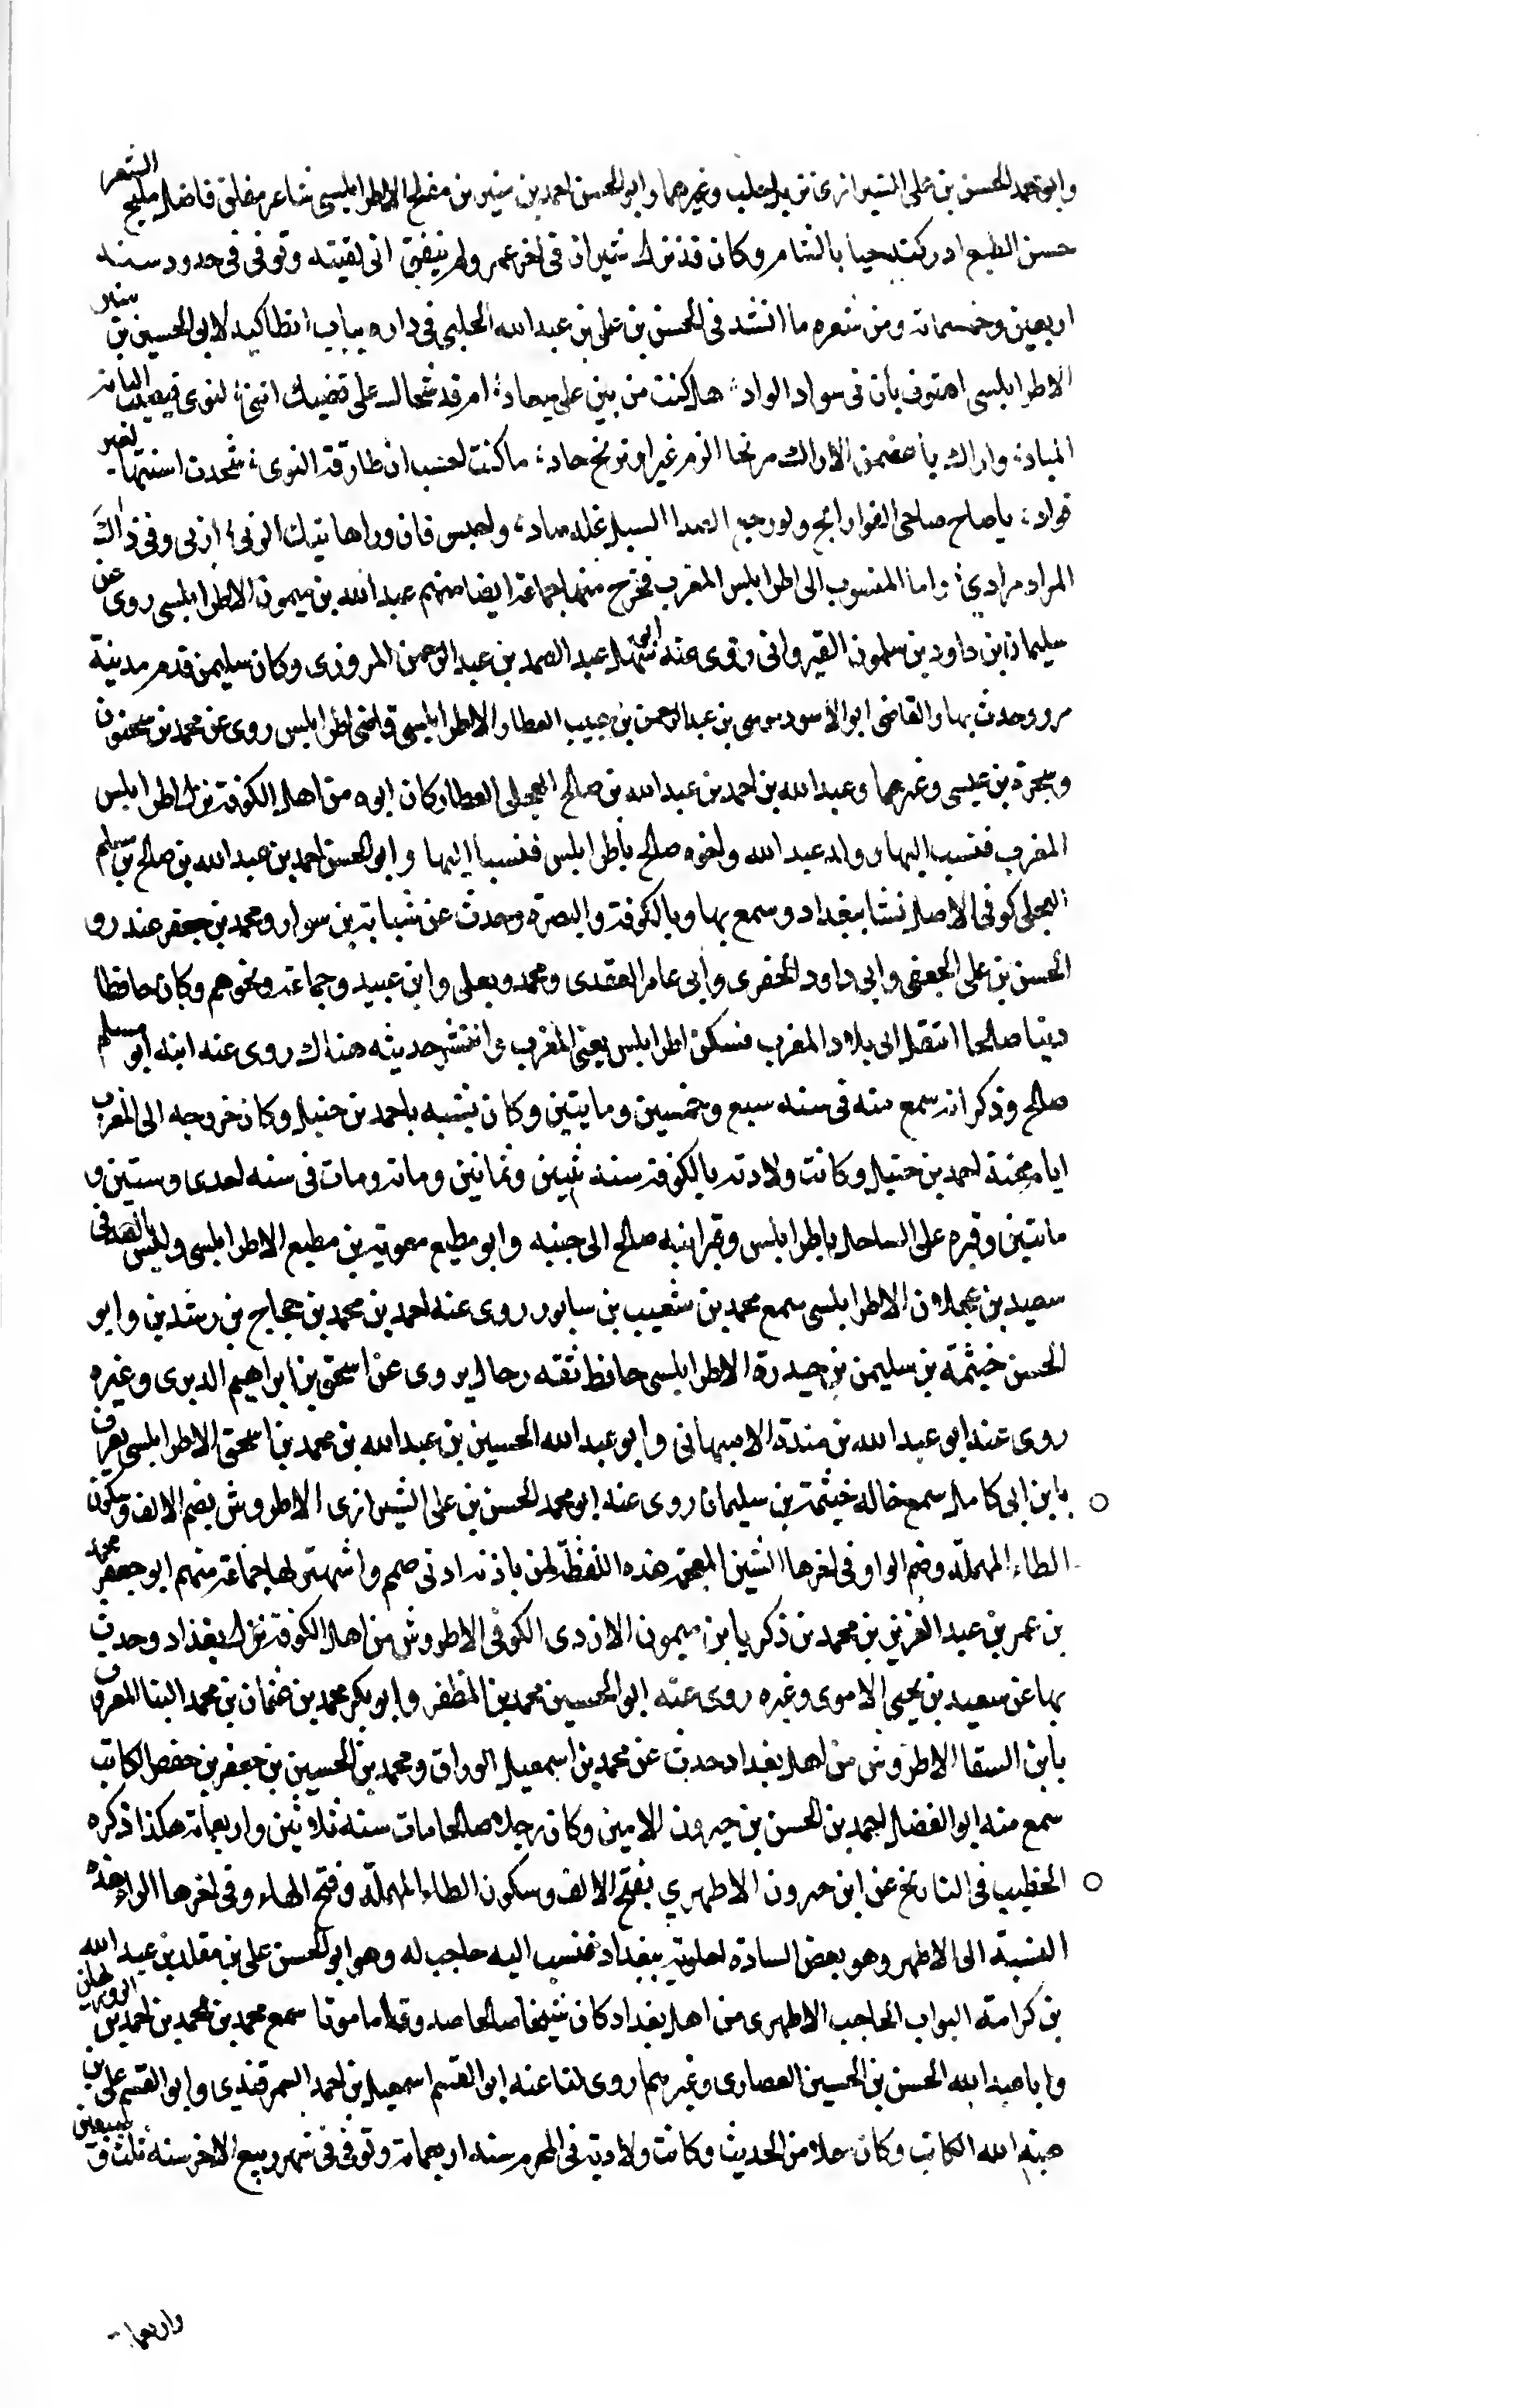 وابو محمد الحسن بن على الشيرازى نزيل حلب وغيرهما وابو الحسن احمد بن منير بن مفلح الاطرابلسى شاعر مفلق فاضل مليح الشعر
حسن الطبع ادركته حيا بالشام وكان قد نزل شيزر فى اخر عمره ولم يتفق انى لقيته وتوفى فى حدود سنه
اربعين وخمسماتة ومن شعره ما انشدنى الحسن بن على بن عبد الله الحلبى فى داره بباب انطاكيه لابى الحسين بن منير
الاطرابلسى يا بان فى سواد الواد هل كنت من بين على ميعاد ام قد شجاك على قضيبك
واراك يا غصن الاراك مرنحا ما كنت احسب ان طارقة النوى شحدت اسنتها لغير
فواد يا صاح صاحى ولو رجع السيل ولحبس فان وراها اربى وفى ذاك
المراد مرادى واما المنسوب الى اطرابلس المغرب فخرج منها جماعة ايضا منهم عبد الله بن ميمون الاطرابلسى روى عن
سليمان بن داود بن سلمون القيروانى روى عنه ابو سهل عبد الصمد بن عبد الرحمن المروزى وكان سليمن قدم مدينة
مرو وحدث بها والقاضى ابو الاسود موسى بن عبد الرحمن بن حبيب العطار الاطرابلسى قاضى اطرابلس روى عن محمد بن سحنون
وشجرة بن عيسى وغيرهما وعبد الله بن احمد بن عبد الله بن صالح العجلى العطار كان ابوه من اهل الكوفة نزل اطرابلس
المغرب فنسب اليها وولد عبد الله واخوه صالح باطرابلس فنسبا اليها وابو الحسن احمد بن عبد الله بن صالح بن مسلم
العجلى كوفى الاصل نشا ببغداد وسمع بها وبالكوفة والبصرة وحدث عن شبابة بن سوار ومحمد بن جعفر غندر و
الحسين بن على الجعفى وابى داود الحفرى وابى عامر العقدى ومحمد ويعلى وابن عبيد وجماعة ونحوهم وكان حافظا
دينا صالحا انتقل الى بلاد المغرب فسكن اطرابلس يعنى المغرب وانتشر حديثه هناك روى عنه ابنه ابو مسلم
صالح وذكر انه سمع منه فى سنه سبع وخمسين ومايتين وكان يشبه باحمد بن حنبل وكان خروجه الى المغرب
ايام محنة احمد بن حنبل وكانت ولادته بالكوفة سنة ثنين وثمانين وماتة ومات فى سنه احدى وستين و
ماتتين وقبره على الساحل باطرابلس وقبر ابنه صالح الى جنبه وابو مطيع معوية بن مطيع الاطرابلسى وليس بالصدفى
سعيد بن عجلان الاطرابلسى سمع محمد بن شعيب بن سابور روى عنه احمد بن محمد بن حجاج بن رشدين وابو
الحسن خيثمة بن سليمن بن حيدرة الاطرابلسى حافظ ثقه رحال يروى عن اسحق بن ابراهيم الدبرى وغيره
روى عنه ابو عبد الله بن مندة الاصبهانى وابو عبد الله الحسين بن عبد الله بن محمد بن اسحق الاطرابلسى يعرف
بابن ابى كامل سمع خاله خيثمة بن سليمان روى عنه ابو محمد الحسن بن على الشيرازى الاطروش بضم الالف وسكون
الطاء المهملة وضم الواو وفى اخرها الشين المعجمة هذه اللفظة لمن باذنه ادنى صمم واشتهر بها جماعة منهم ابو جعفر محمد
بن عمر بن عبد العزيز بن محمد بن زكريا بن ميمون الازدى الكوفى الاطروش من اهل الكوفة نزل بغداد وحدث
بها عن سعيد بن يحيى الاموى وغيره روى عنه ابو الحسين محمد بن المظفر وابو بكر محمد بن عثمان بن محمد البنا المعروف
بابن السقا الاطروش من اهل بغداد حدث عن محمد بن اسمعيل الوراق ومحمد بن الحسين بن جعفر بن حفص الكاتب
سمع منه ابو الفضل احمد بن الحسن بن خيرون الامين وكان رجلا صالحا مات سنة ثلاثين واربعماتة هكذا ذكره
الخطيب فى التاريخ عن ابن خيرون الاطهري بفتح الالف وسكون الطاء المهملة وفتح الهاء وفى اخرها الراء هذه
النسبة الى الاطهر وهو بعض السادة العلوية ببغداد فنسب اليه حاجب له وهو ابو الحسن على بن مقلد بن عبد الله
بن كرامة البواب الحاجب الاطهرى من اهل بغداد كان شيخا صالحا صدوقا مامونا سمع محمد بن محمد بن احمد بن الروزبهان
وابا عبد الله الحسن بن الحسين الغضارى وغيرهم روى لنا عنه ابو القسم اسمعيل بن احمد السمرقندى وابو القسم على بن
هبة الله الكاتب وكان مقلا من الحديث وكانت ولادته فى المحرم سنه اربعماتة وتوفى فى شهر ربيع الاخر سنة ثلث وسبعين
واربعما